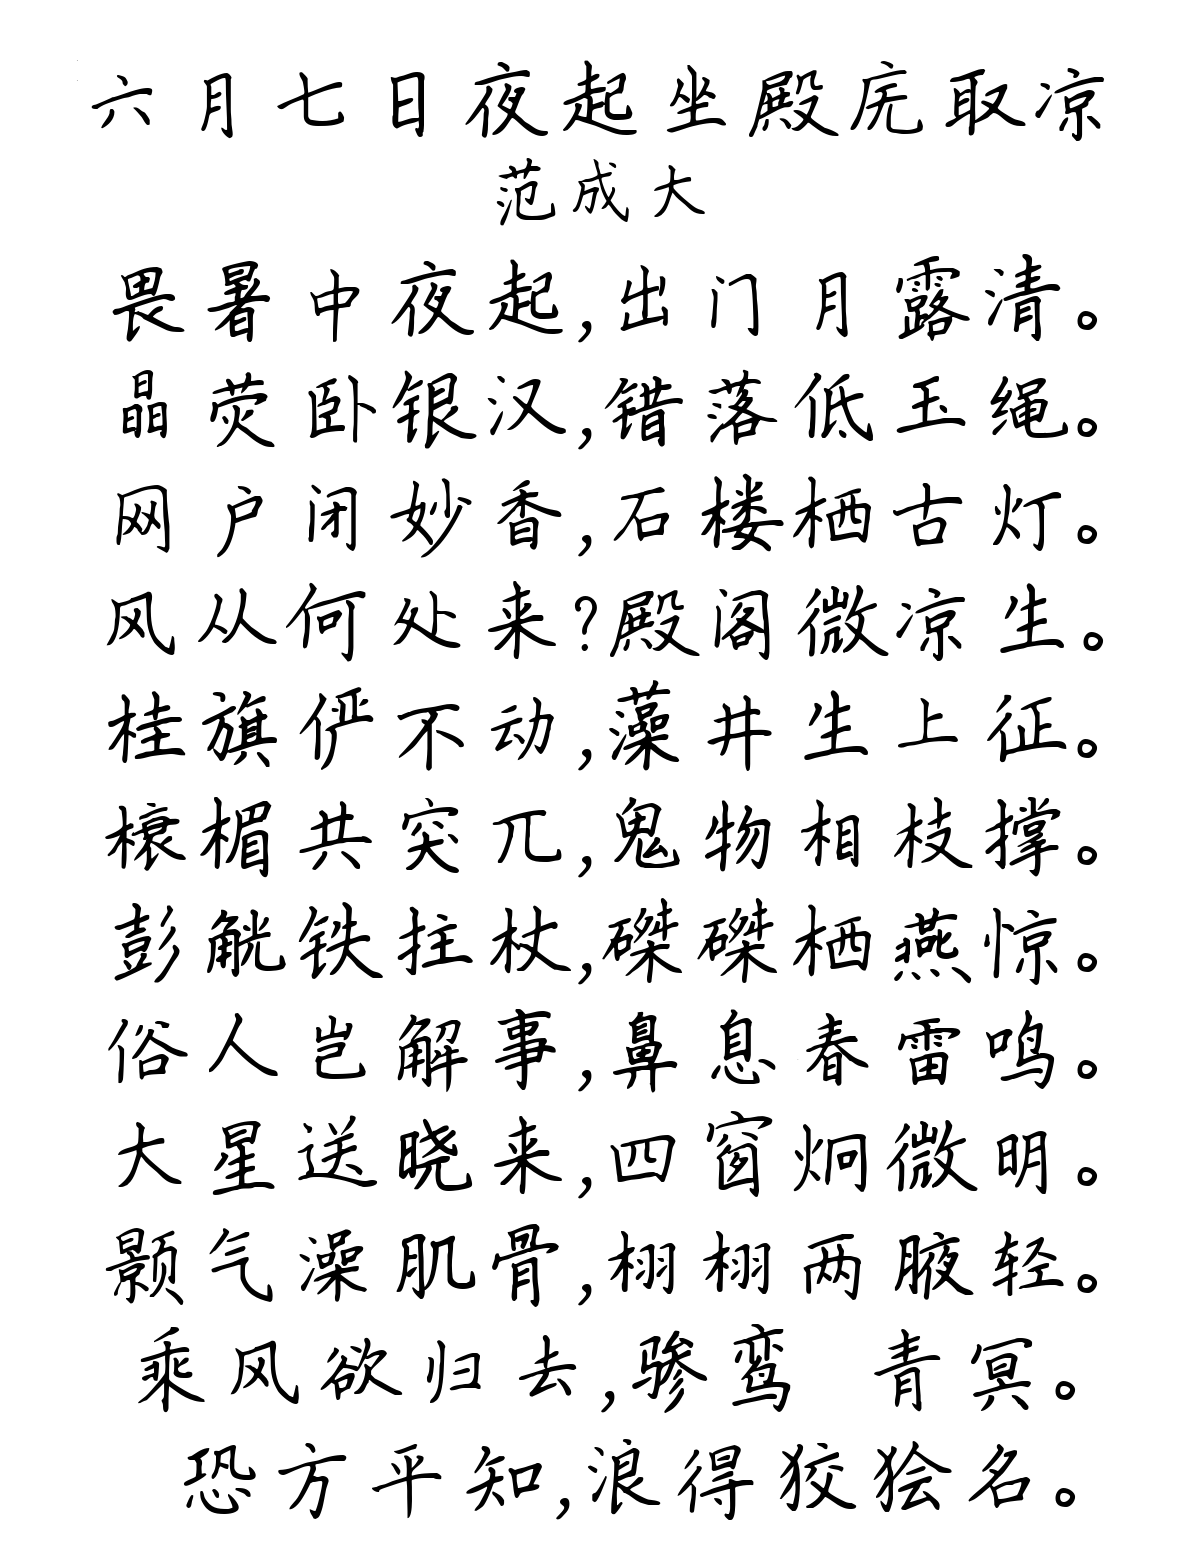 六月七日夜起坐殿庑取凉
范成大
畏暑中夜起,出门月露清。
晶荧卧银汉,错落低玉绳。
网户闭妙香,石楼栖古灯。
风从何处来?殿阁微凉生。
桂旗俨不动,藻井生上征。
榱楣共突兀,鬼物相枝撑。
彭觥铁拄杖,磔磔栖燕惊。
俗人岂解事,鼻息春雷鸣。
大星送晓来,四窗炯微明。
颢气澡肌骨,栩栩两腋轻。
乘风欲归去,骖鸾 青冥。
恐方平知,浪得狡狯名。